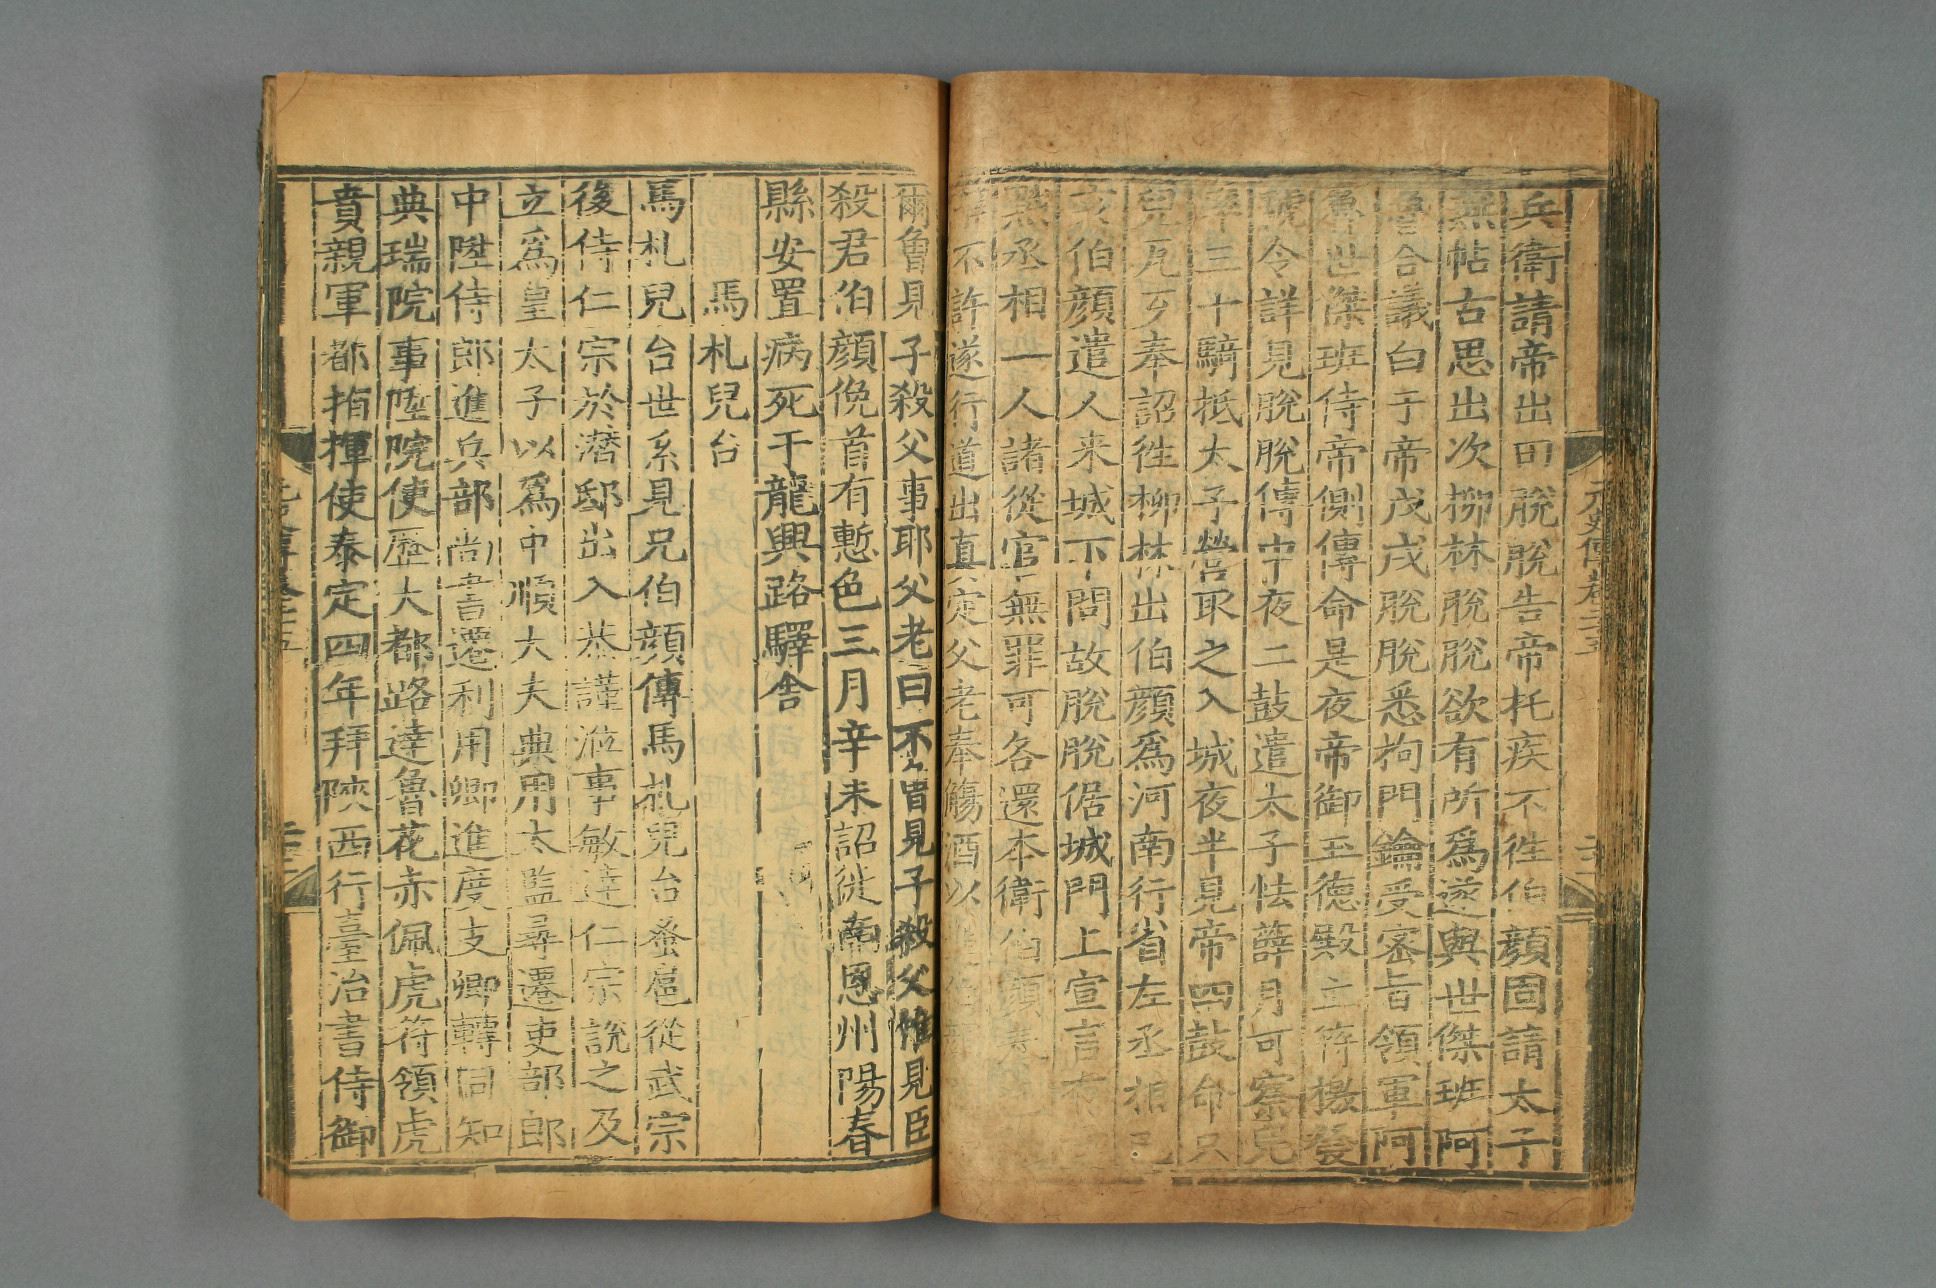 兵衛請帝出田脫脫告帝托疾不徃伯顏固請太子
燕帖古思出次柳林脫脫欲有所爲遂與世傑班阿
魯合議白于帝戊戌脫脫悉拘門鑰受密旨領軍阿
魯世傑班侍帝側傳命是夜帝御玉德殿主符檄發
號令詳見脫脫傳中夜二鼓遣太子怯薛月可察兒
率三十騎抵太子營取之入城夜半見帝四鼓命只
兒瓦歹奉詔徃柳林出伯顏爲河南行省左丞相己
亥伯顏遣人来城下問故脫脫倨城門上宣言有
黜丞相一人諸從官無罪可各還本衛伯顏
不許遂行道出真定父老奉觴酒以進伯
元史傳卷二十五
爾魯見子殺父事耶父老曰不曾見子殺父惟見臣
殺君伯顏俛首有慙色三月辛未詔徙南恩州陽春
縣安置病死于龍興路驛舍
馬札兒台
馬札兒台世系見兄伯顏傳馬札兒台蚤扈從武宗
後侍仁宗於潛邸出入恭謹涖事敏達仁宗說之及
立爲皇太子以爲中順大夫典用太監尋遷吏部郎
中陞侍郎進兵部尚書遷利用卿進度支卿轉同知
典瑞院事陞院使歷大都路達魯花赤佩虎符領虎
賁親軍都指揮使泰定四年拜陝西行臺治書侍御